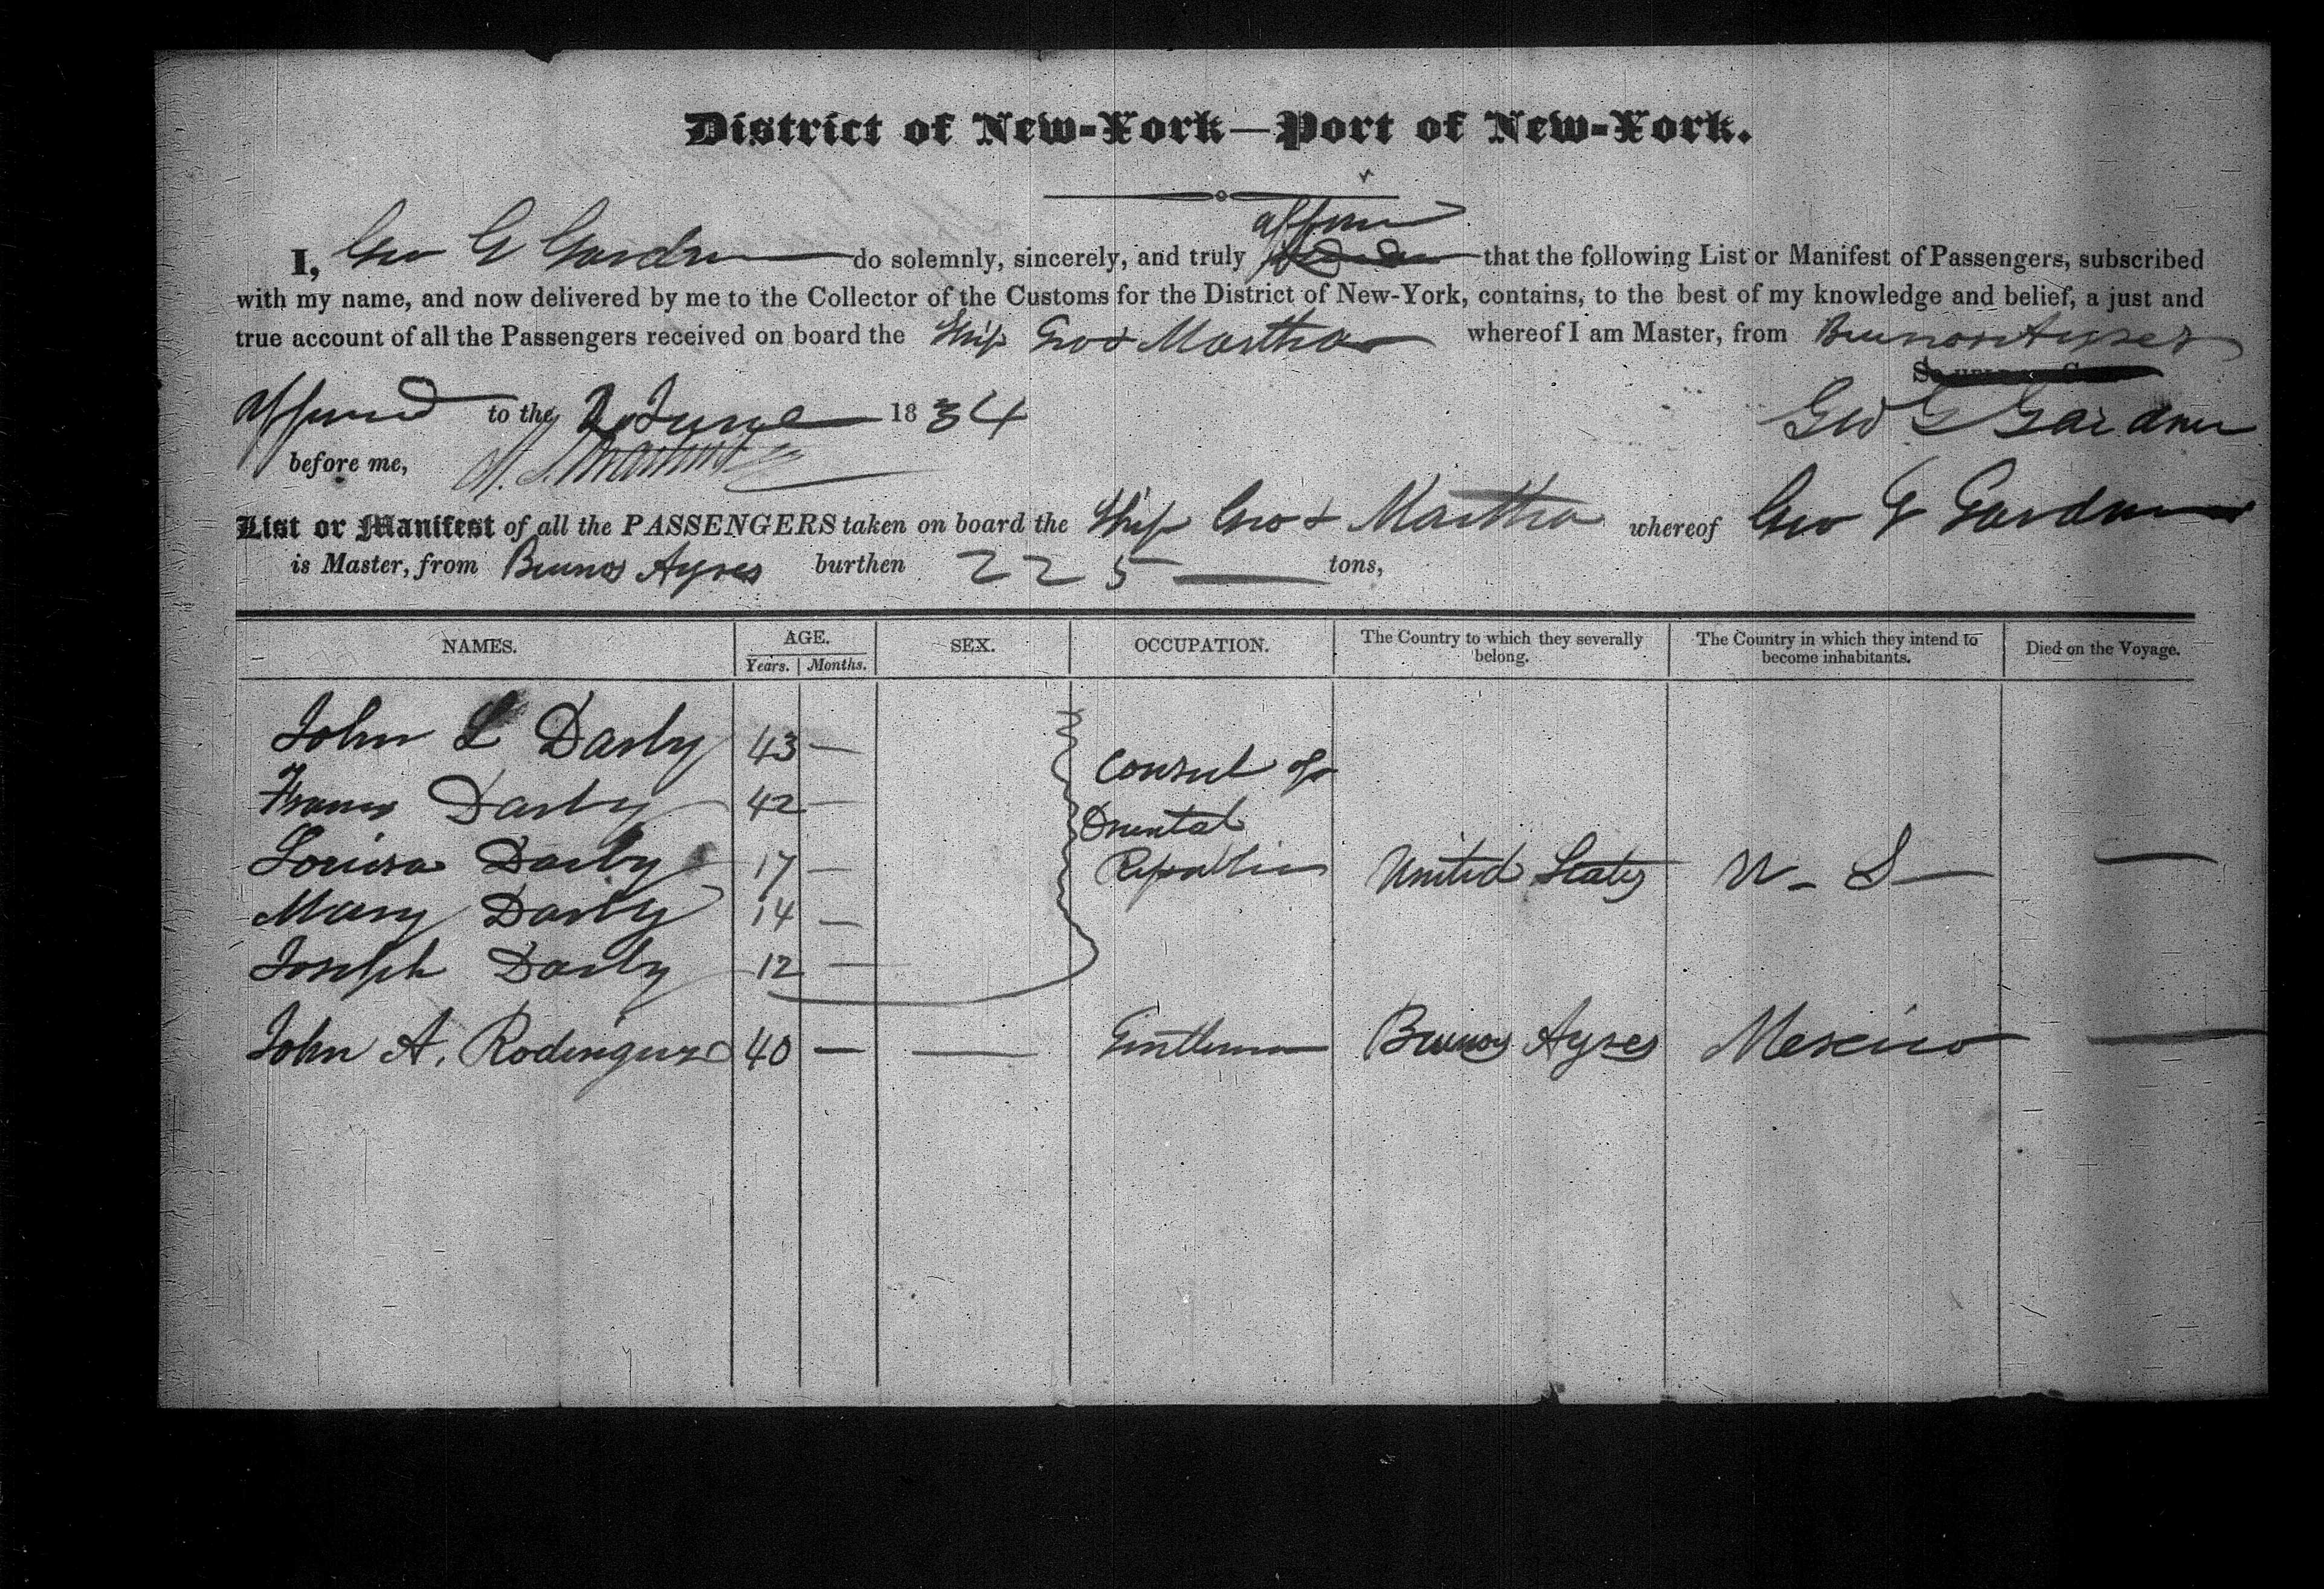 District of New-York—Port of New-York.
I, Geo G Gardner do solemnly, sincerely, and truly affirm that the following List or Manifest of Passengers, subscribed
with my name, and now delivered by me to the Collector of the Customs for the District of New-York, contains, to the best of my knowledge and belief, a just and
true account of all the Passengers received on board the Ship Geo & Martha whereof I am Master, from Buenos Ayres
Affirmed to the 2 June 1834
Geo G Gardner
before me,
List or Manifest of all the PASSENGERS taken on board the Ship Geo & Martha whereof Geo G Gardner
is Master, from Buenos Ayres burthen 225 tons,
NAMES. AGE. Years. Months. SEX. OCCUPATION. The Country to which they severally belong. The Country in which they intend to become inhabitants. Died on the Voyage.
John L Darby 43 —
Frances Darby 42 —
Louisa Darby 17 —
Mary Darby 14 —
Joseph Darby 12 —
Consul of
Oriental
Republic United States U — S — —
John A. Roderiguez 40 — — Gentleman Buenos Ayres Mexico —